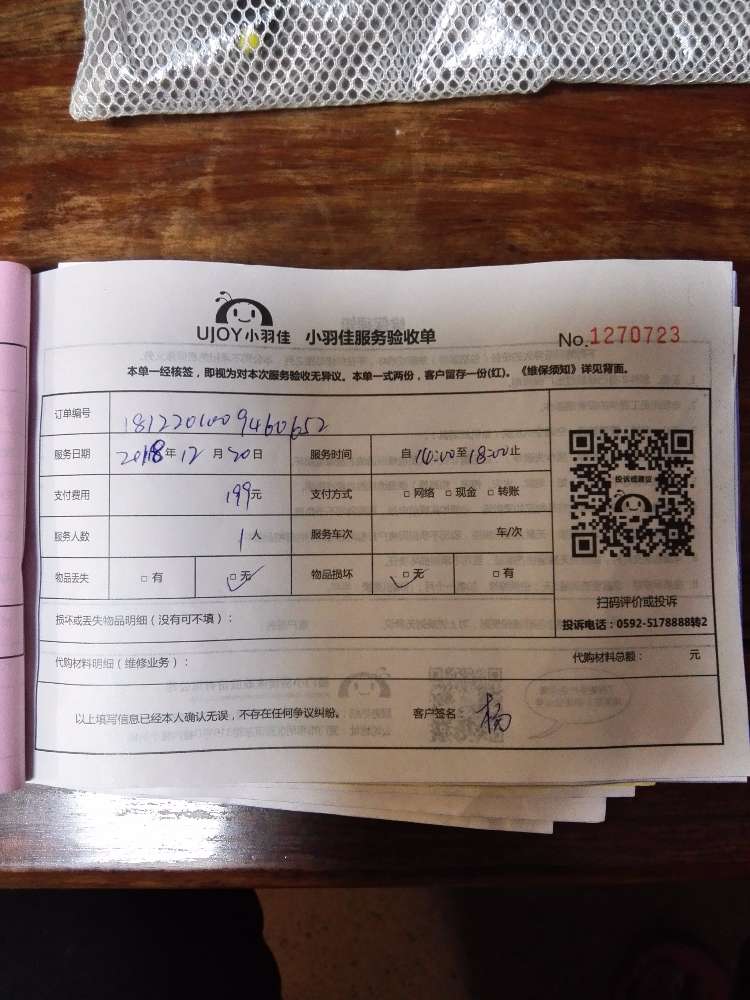 UJOY小羽佳 小羽佳服务验收单 No.1270723
本单一经核签，即视为对本次服务验收无异议。本单一式两份，客户留存一份(红)。《维保须知》详见背面。
订单编号 1812201009460652
服务日期 2018年 12月 20日 服务时间 自 14:00 至 18:00 止
支付费用 199元 支付方式 □ 网络 □ 现金 □ 转账
服务人数 1人 服务车次 车/次
物品丢失 □ 有 □ 无 ✓ 物品损坏 □ 无 ✓ □ 有
投诉或建议
扫码评价或投诉
投诉电话：0592-5178888转2
损坏或丢失物品明细（没有可不填）：
代购材料明细（维修业务）： 代购材料总额： 元
以上填写信息已经本人确认无误，不存在任何争议纠纷。 客户签名： 杨